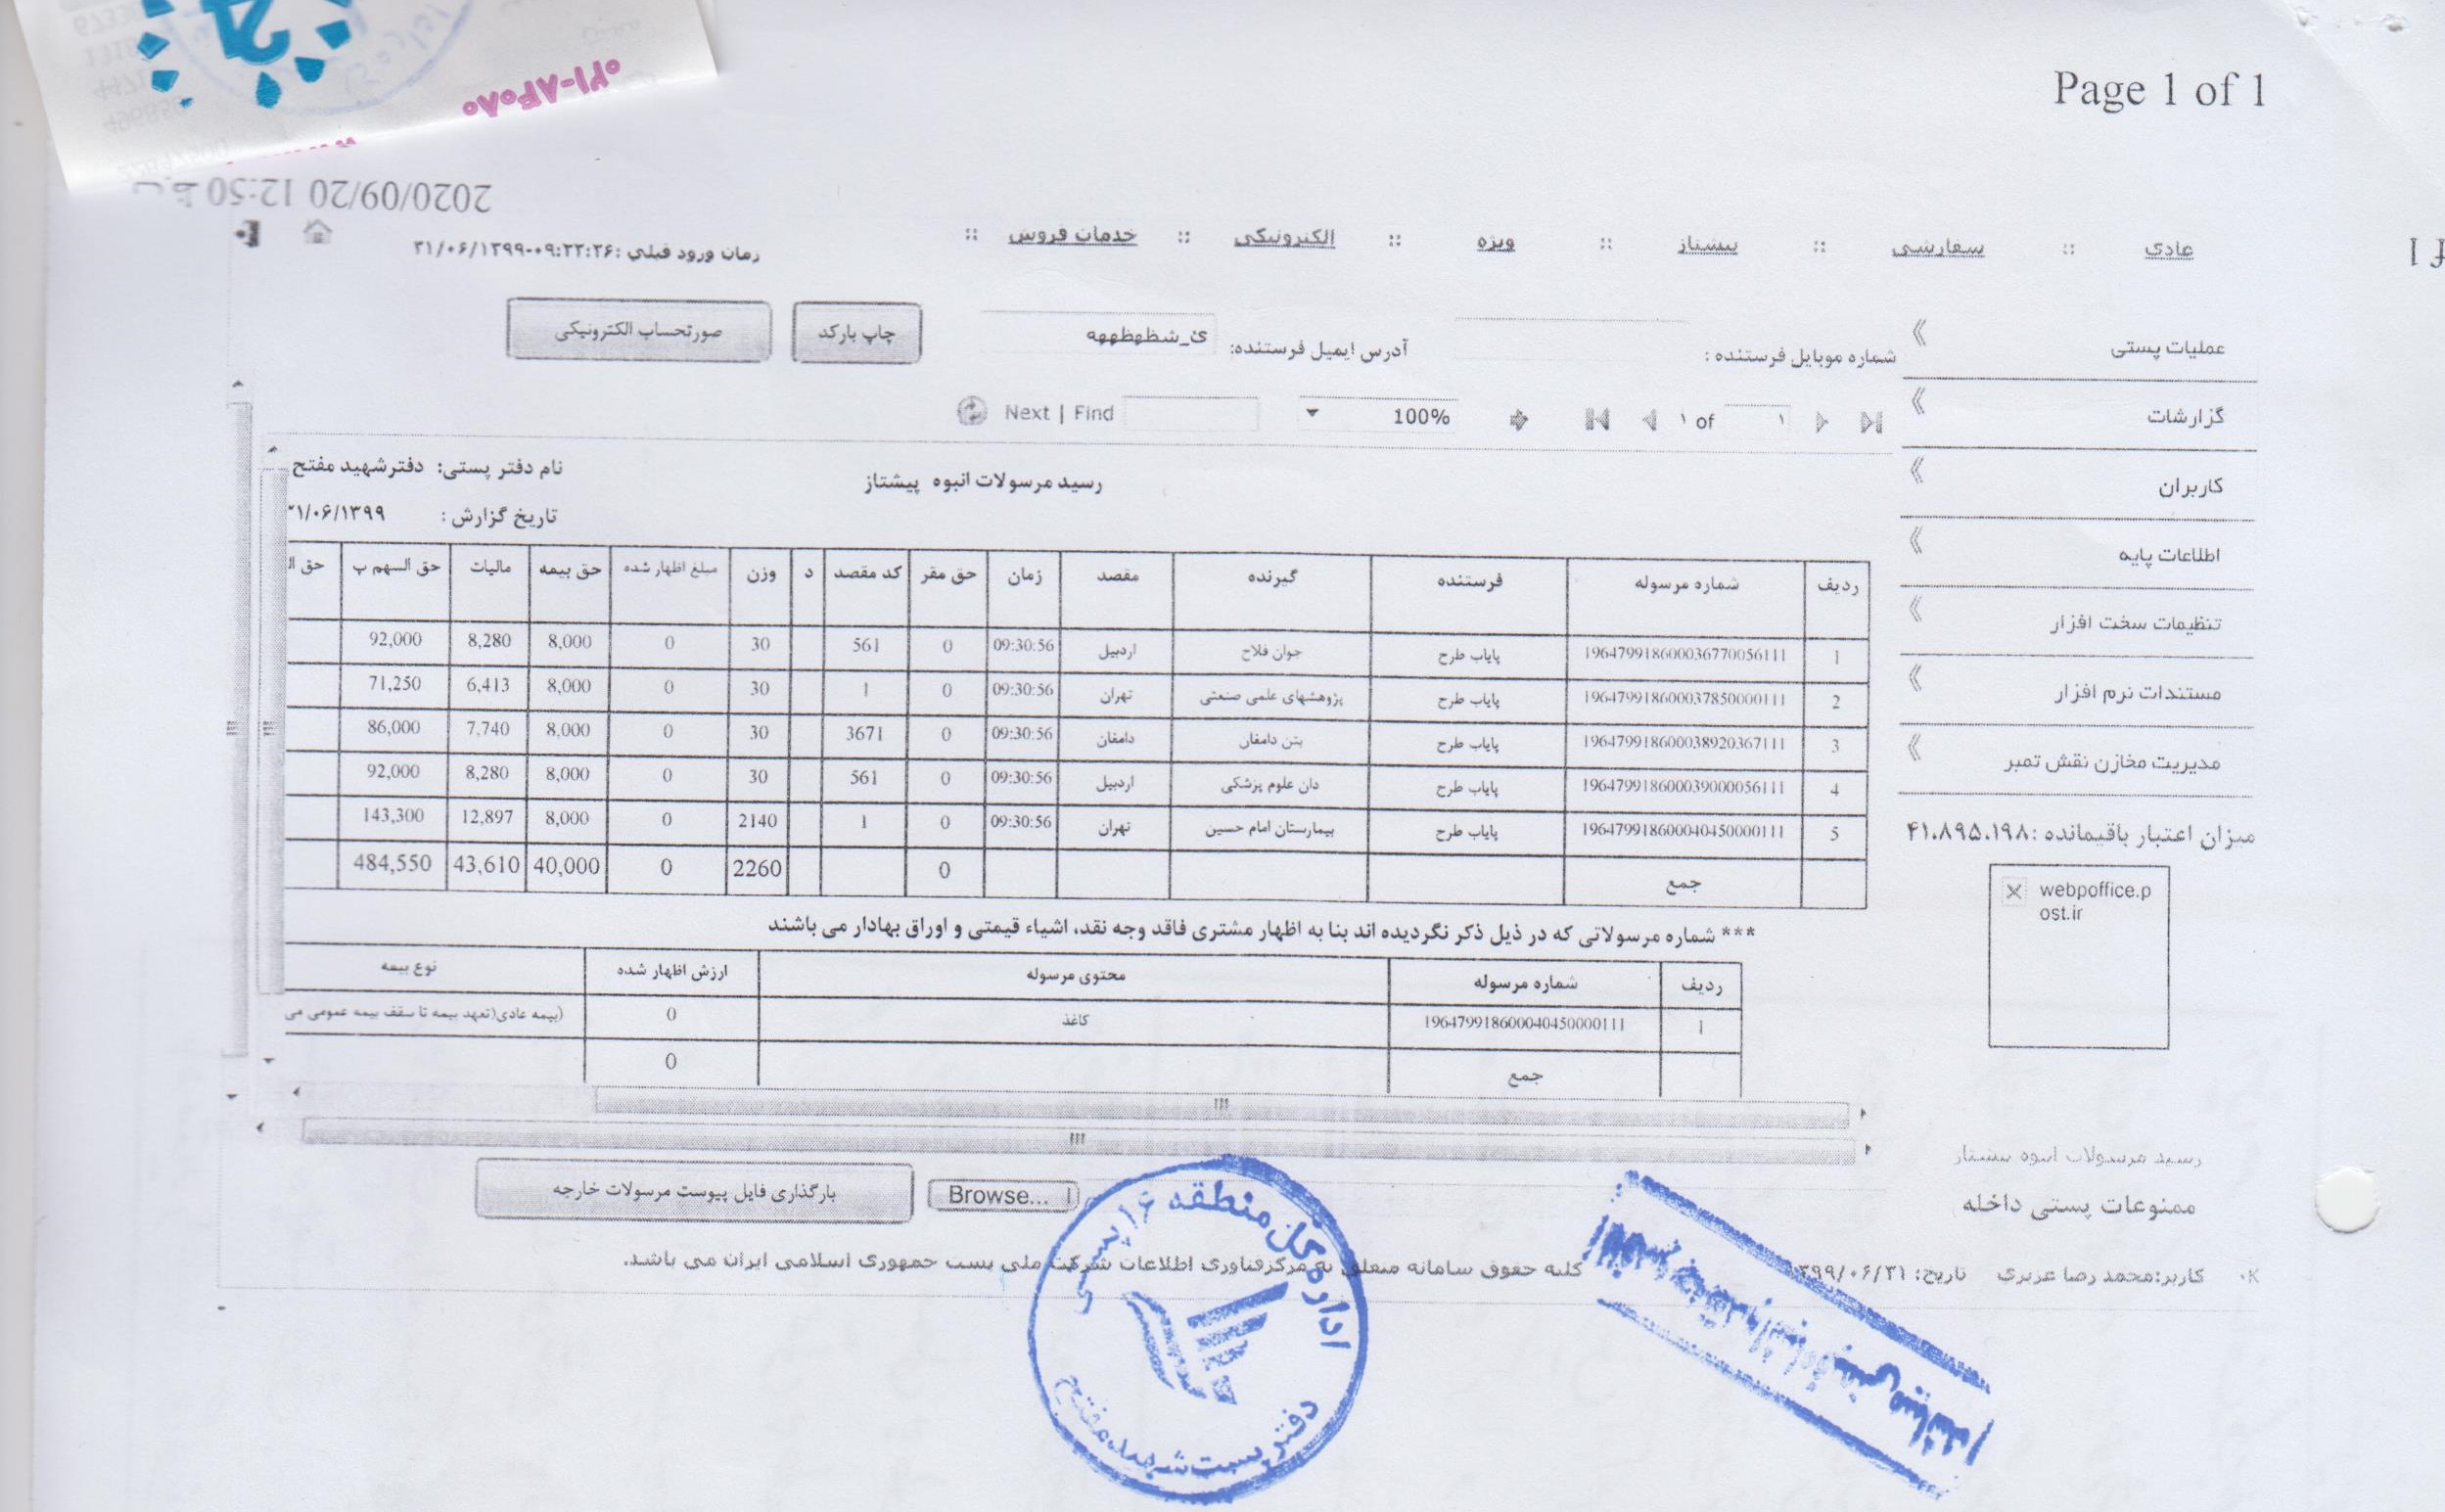 ۰۲۱-۸۴۰۸۰
Page 1 of 1
2020/09/20 12:50
عادی :: سفارشی :: پیشتاز :: ویژه :: الکترونیکی :: خدمات فروش ::
زمان ورود قبلي :۰۹:۲۲:۲۶-۳۱/۰۶/۱۳۹۹
شماره موبایل فرستنده :
آدرس ایمیل فرستنده:
چاپ بارکد
صورتحساب الکترونیکی
عملیات پستی
گزارشات
کاربران
اطلاعات پایه
تنظیمات سخت افزار
مستندات نرم افزار
مدیریت مخازن نقش تمبر
میزان اعتبار باقیمانده :۴۱.۸۹۵.۱۹۸
webpoffice.p
ost.ir
۱ of ۱ 100% Next | Find
رسید مرسولات انبوه پیشتاز
نام دفتر پستی: دفترشهید مفتح
تاریخ گزارش : ۳۱/۰۶/۱۳۹۹
ردیف شماره مرسوله فرستنده گیرنده مقصد زمان حق مقر کد مقصد د وزن مبلغ اظهار شده حق بیمه مالیات حق السهم پ حق ال
1 196479918600036770056111 پایاب طرح جوان فلاح اردبیل 09:30:56 0 561 30 0 8,000 8,280 92,000
2 196479918600037850000111 پایاب طرح پژوهشهای علمی صنعتی تهران 09:30:56 0 1 30 0 8,000 6,413 71,250
3 196479918600038920367111 پایاب طرح بتن دامغان دامغان 09:30:56 0 3671 30 0 8,000 7,740 86,000
4 196479918600039000056111 پایاب طرح دان علوم پزشکی اردبیل 09:30:56 0 561 30 0 8,000 8,280 92,000
5 196479918600040450000111 پایاب طرح بیمارستان امام حسین تهران 09:30:56 0 1 2140 0 8,000 12,897 143,300
جمع 0 2260 0 40,000 43,610 484,550
*** شماره مرسولاتی که در ذیل ذکر نگردیده اند بنا به اظهار مشتری فاقد وجه نقد، اشیاء قیمتی و اوراق بهادار می باشند
ردیف شماره مرسوله محتوی مرسوله ارزش اظهار شده نوع بیمه
1 196479918600040450000111 کاغذ 0 (بیمه عادی(تعهد بیمه تا سقف بیمه عمومی می
جمع 0
رسید مرسولات انبوه پیشتاز
Browse...
بارگذاری فایل پیوست مرسولات خارجه
ممنوعات پستی داخله
کاربر:محمد رضا عزیزی تاریخ: ۱۳۹۹/۰۶/۳۱
کلیه حقوق سامانه متعلق به مرکزفناوری اطلاعات شرکت ملی پست جمهوری اسلامی ایران می باشد.
اداره کل منطقه ۱۶ پستی
دفتر پست شهید مفتح